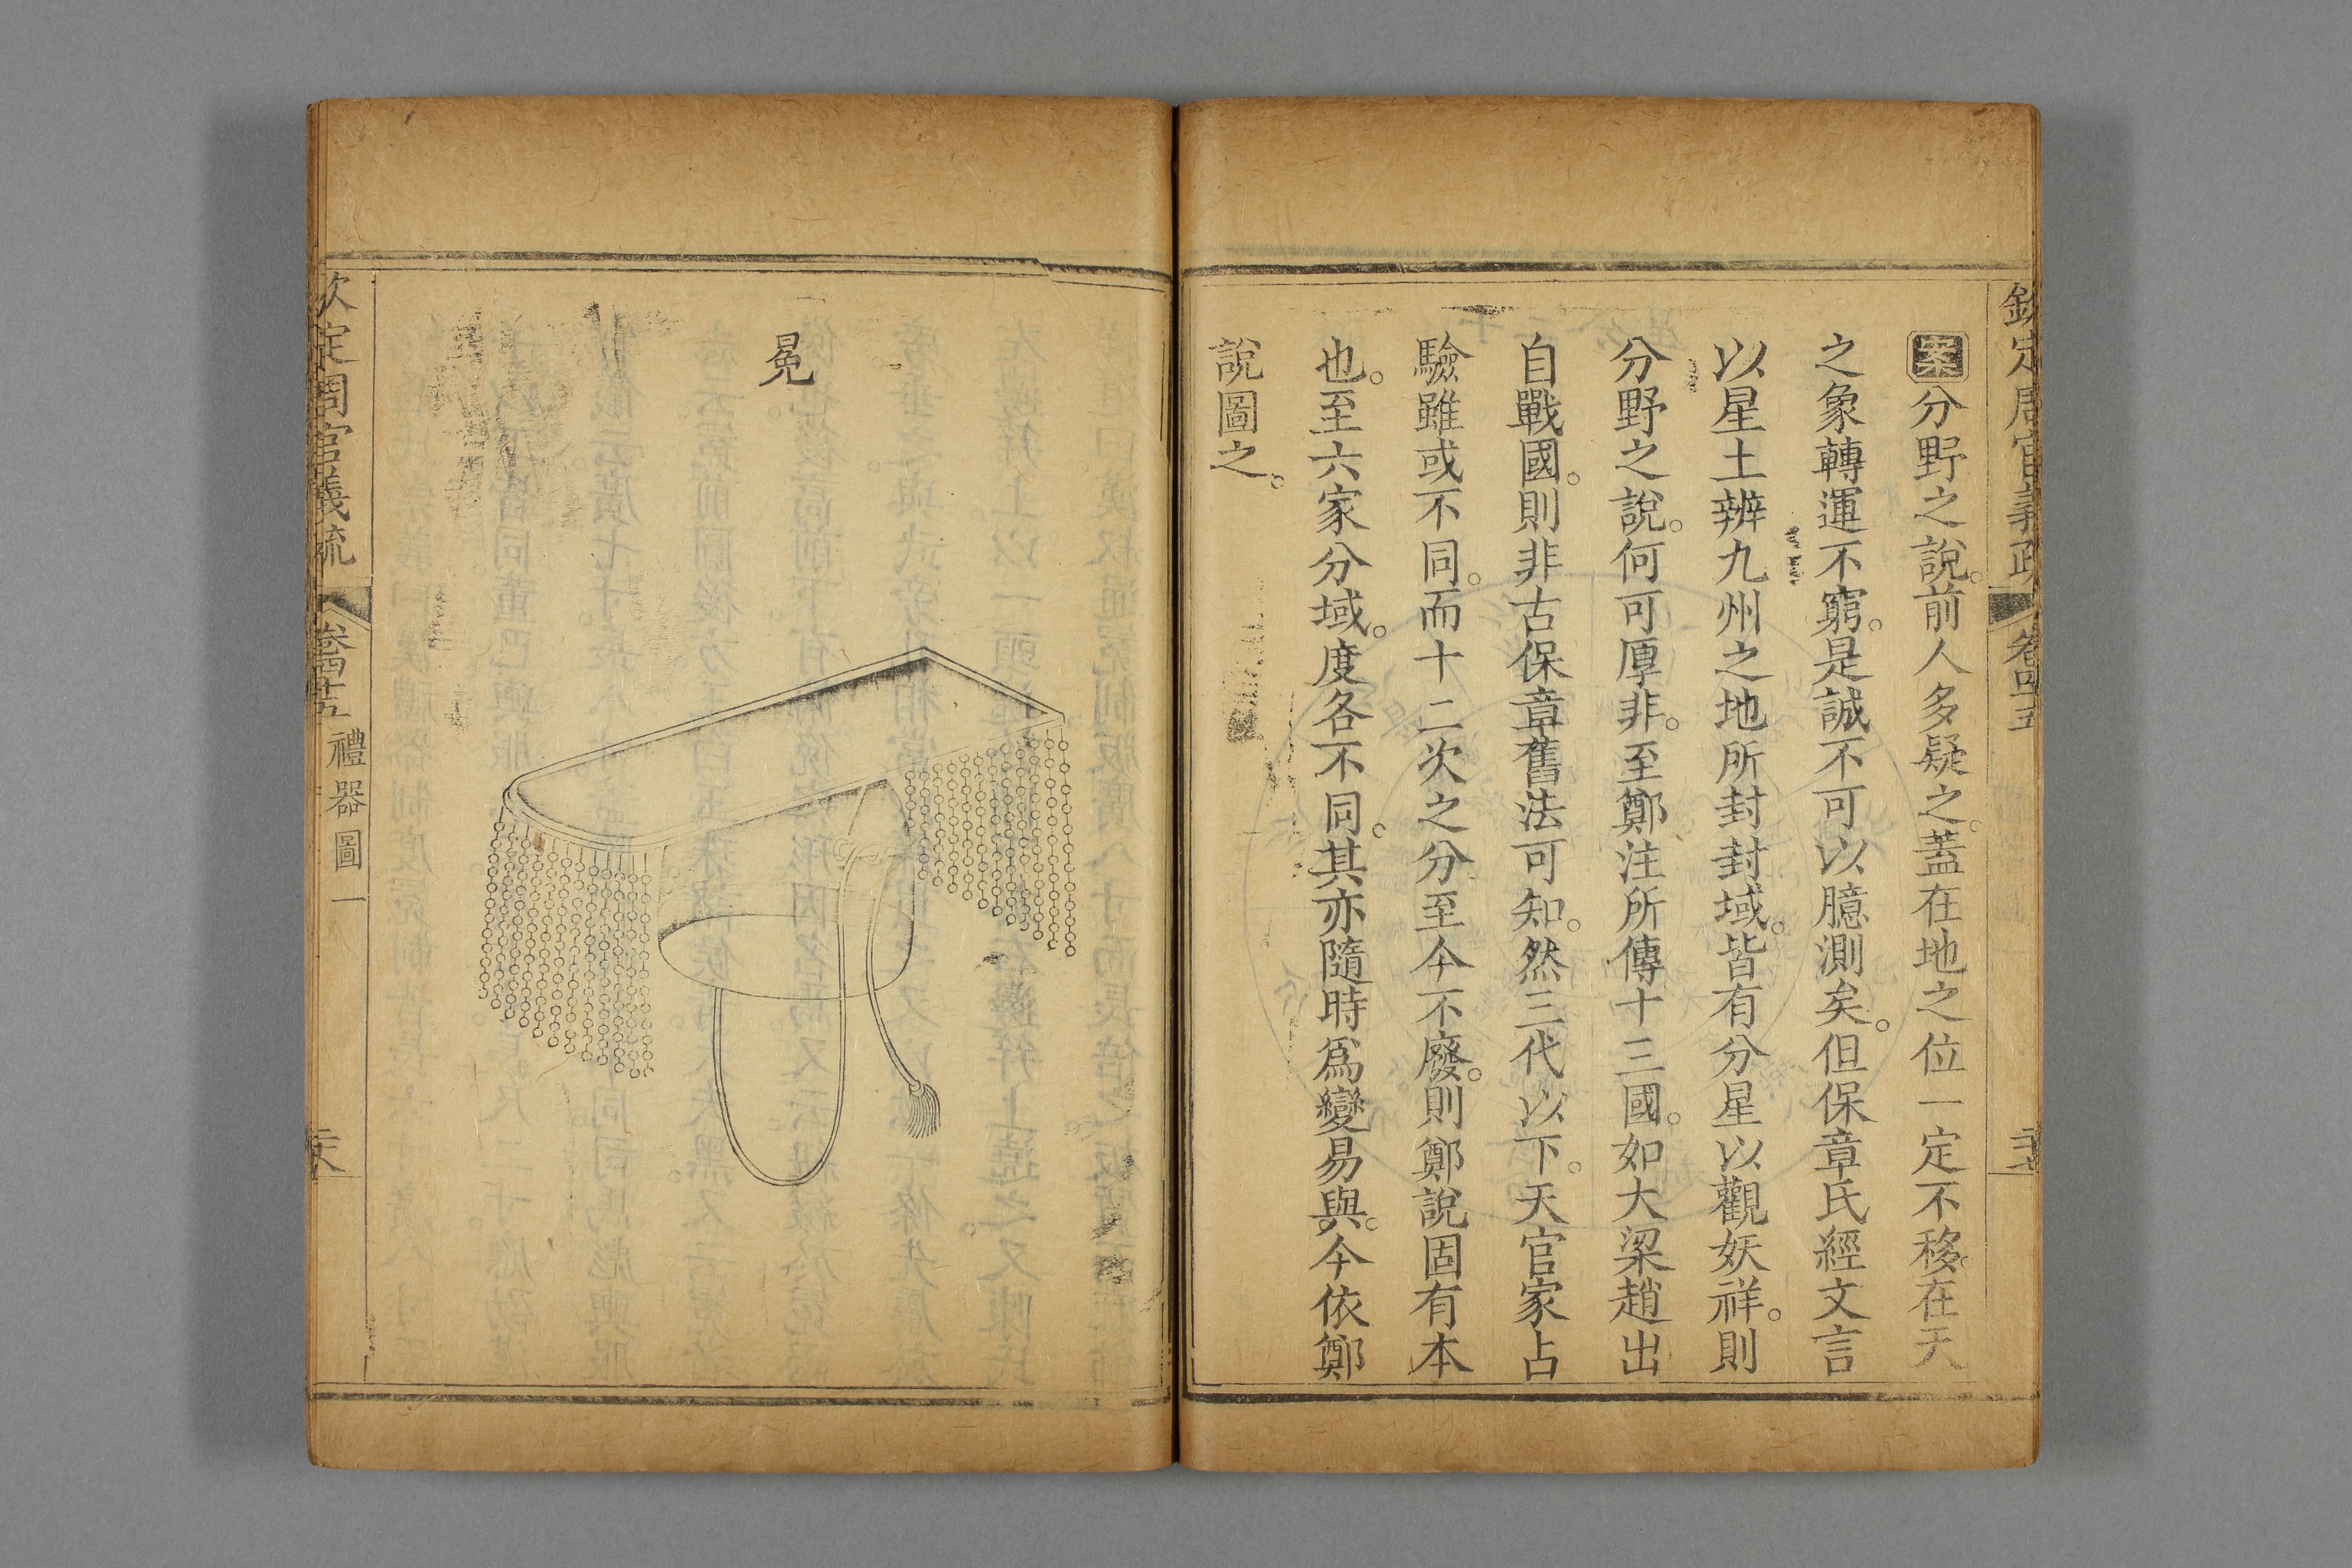 欽定周官義疏 卷四十五
案分野之說。前人多疑之。蓋在地之位一定不移。在天
之象轉運不窮。是誠不可以臆測矣。但保章氏經文言
以星土辨九州之地所封封域。皆有分星以觀妖祥。則
分野之說。何可厚非。至鄭注所傳十三國。如大梁趙出
自戰國。則非古保章舊法可知。然三代以下。天官家占
驗雖或不同。而十二次之分至今不廢。則鄭說固有本
也。至六家分域。度各不同。其亦隨時為變易與。今依鄭
說圖之。
冕
欽定周官義疏 卷四十五 禮器圖一